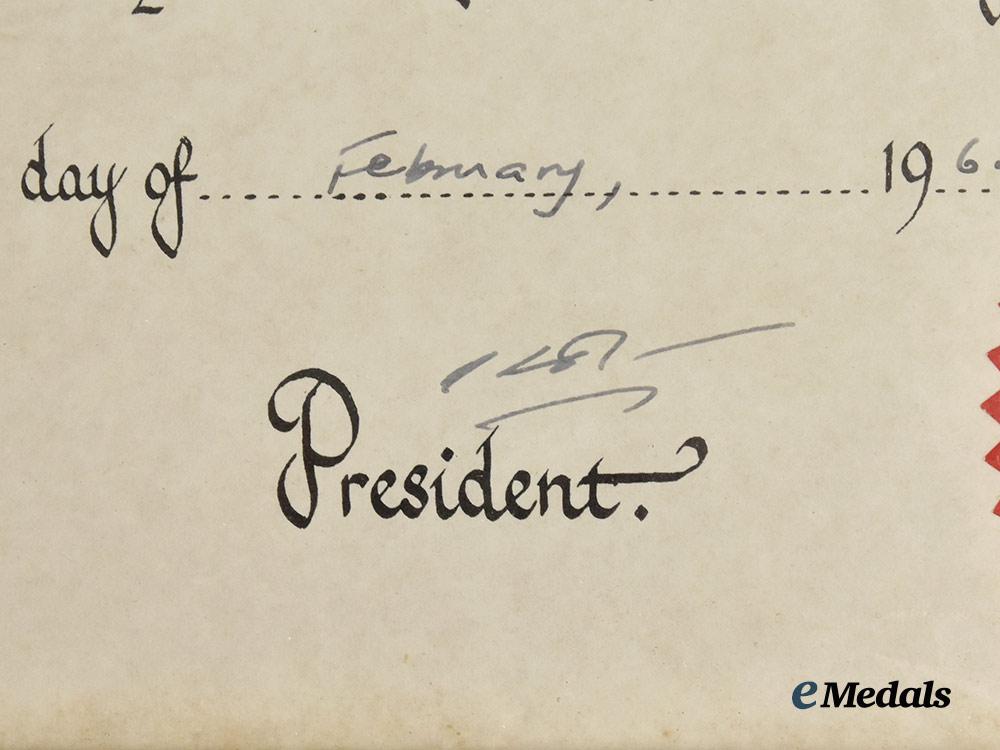 day of February, 19 6
President.
eMedals